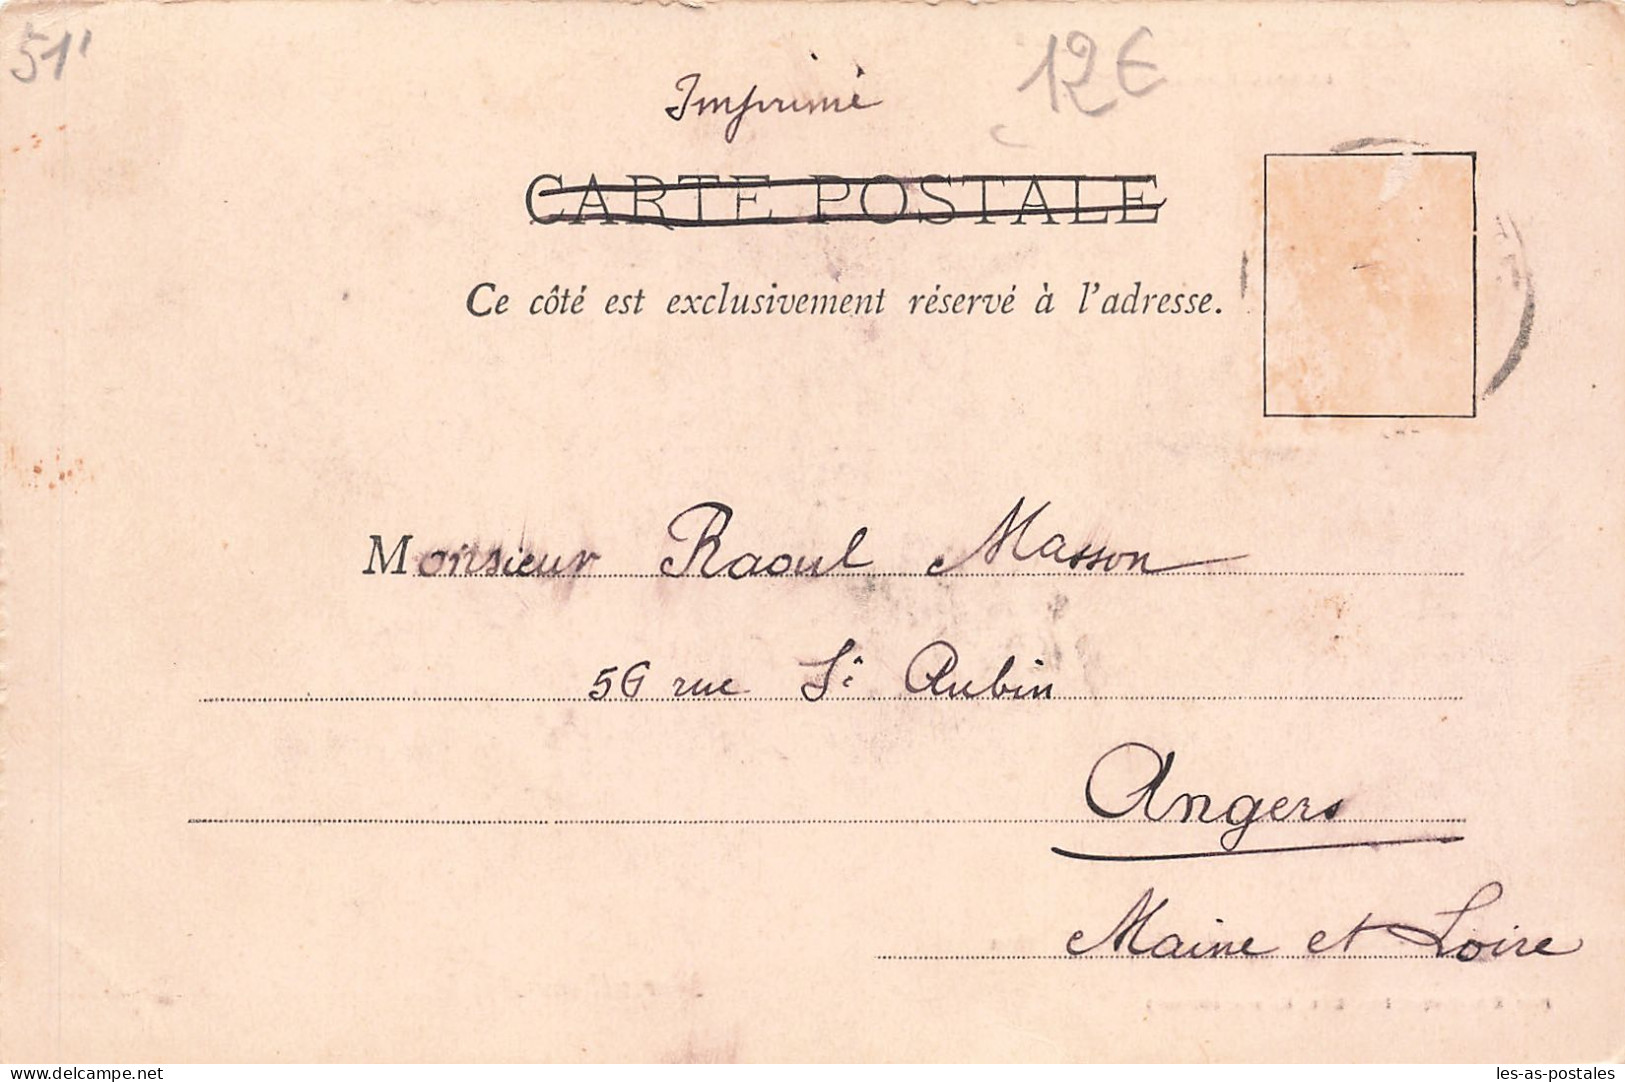 51'
12€
Imprimé
CARTE POSTALE
Ce côté est exclusivement réservé à l'adresse.
Monsieur Raoul Masson
56 rue St Aubin
Angers
Maine et Loire
delcampe.net
les-as-postales